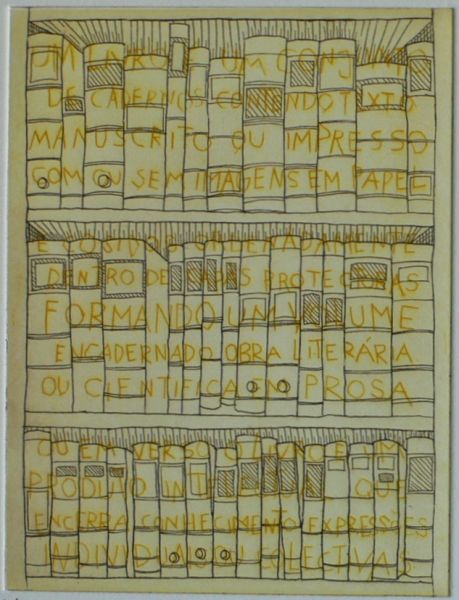 UM LIVRO É UM CONJUNTO
DE CADERNOS CONTENDO TEXTO
MANUSCRITO OU IMPRESSO
COM OU SEM IMAGENS EM PAPEL
E COSIDOS ORDENADAMENTE
DENTRO DE CAPAS PROTECTORAS
FORMANDO UM VOLUME
ENCADERNADO OBRA LITERÁRIA
OU CIENTIFICA EM PROSA
OU EM VERSO O LIVRO É UM
PRODUTO INTELECTUAL QUE
ENCERRA CONHECIMENTO EXPRESSÕES
INDIVIDUAIS COLECTIVAS